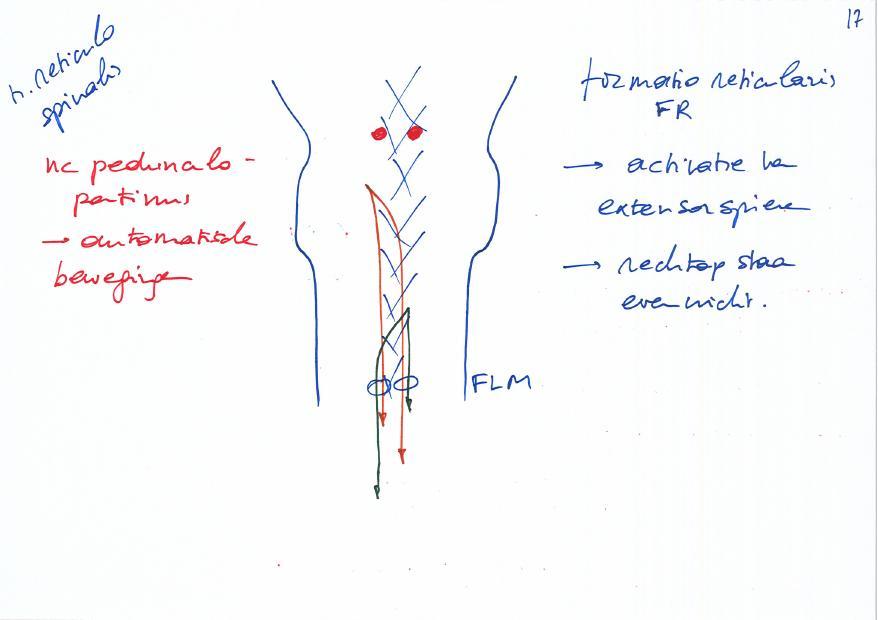 17
tr. reticulo
spinalis
nc pedunculo-
pontinus
→ automatische
bewegingen
formatio reticularis
FR
→ activatie van
extensorspieren
→ rechtop staan
evenwicht.
FLM